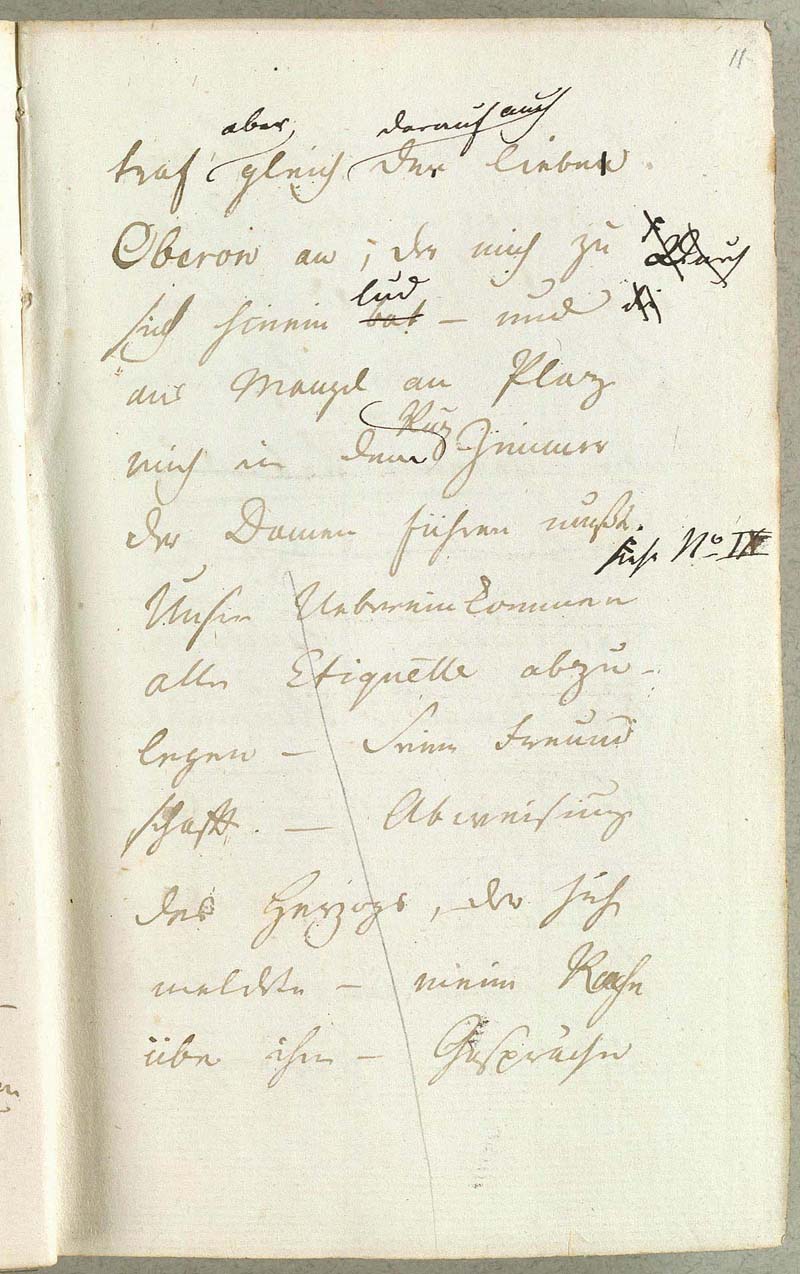 11
aber, darauf auch
traf gleich der lieben
Oberon an; der mich zu
lud
sich hinein bat – und
aus Mangel an Plaz
mich in dem Zimmer
der Damen führen mußte.
siehe No IX
Unser Uebereinkommen
alle Etiquette abzu-
legen – Seine Freund
schaft. – Abweisung
des Herzogs, der sich
meldete – meine Rache
über ihn – Gespräche